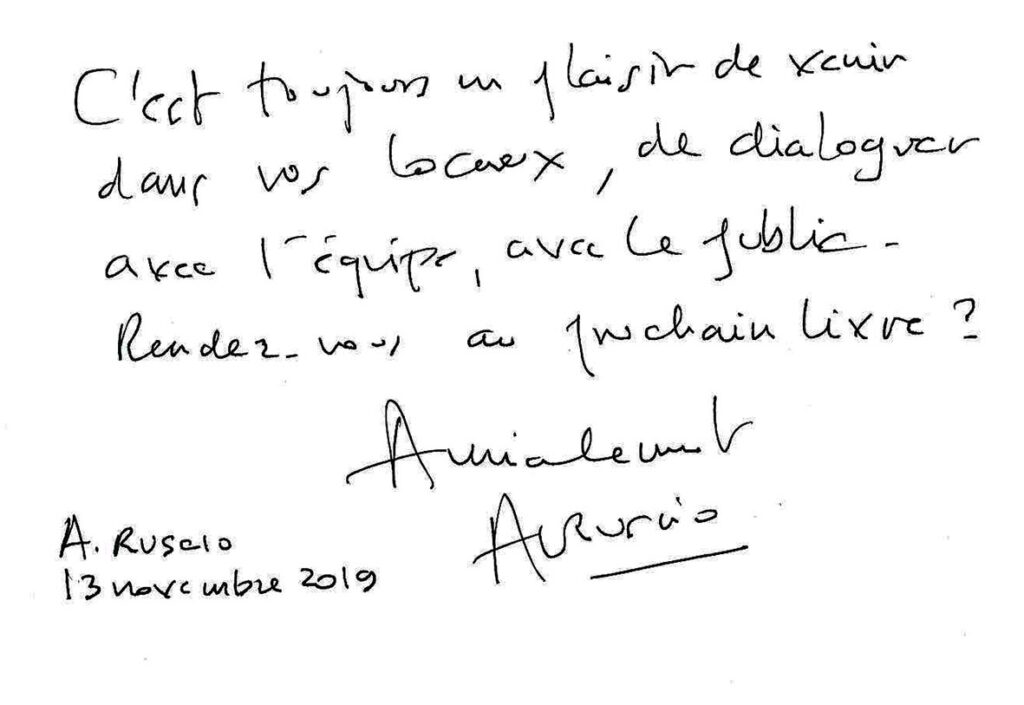 C'est toujours un plaisir de venir
dans vos locaux, de dialoguer
avec l'équipe, avec le public -
Rendez-vous au prochain livre ?
Amicalement
A. Ruscio
A. RUSCIO
13 novembre 2019